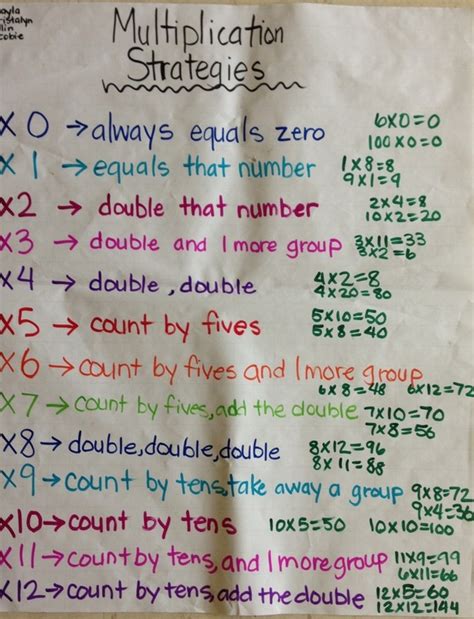 ayla
ristalyn
llin
cobie
Multiplication
Strategies
x 0 → always equals zero
6x0=0
100x0=0
x 1 → equals that number
1x8=8
9x1=9
x2 → double that number
2x4=8
10x2=20
x3 → double and 1 more group
3x11=33
3x2=6
x4 → double, double
4x2=8
4x20=80
x5 → count by fives
5x10=50
5x8=40
x6 → count by fives and 1 more group
6x8=48 6x12=72
x7 → count by fives, add the double
7x10=70
7x8=56
x8 → double, double, double
8x12=96
8x11=88
x9 → count by tens, take away a group
9x8=72
9x4=36
x10 → count by tens
10x5=50 10x10=100
x11 → count by tens, and 1 more group
11x9=99
6x11=66
x12 → count by tens, add the double
12x5=60
12x12=144